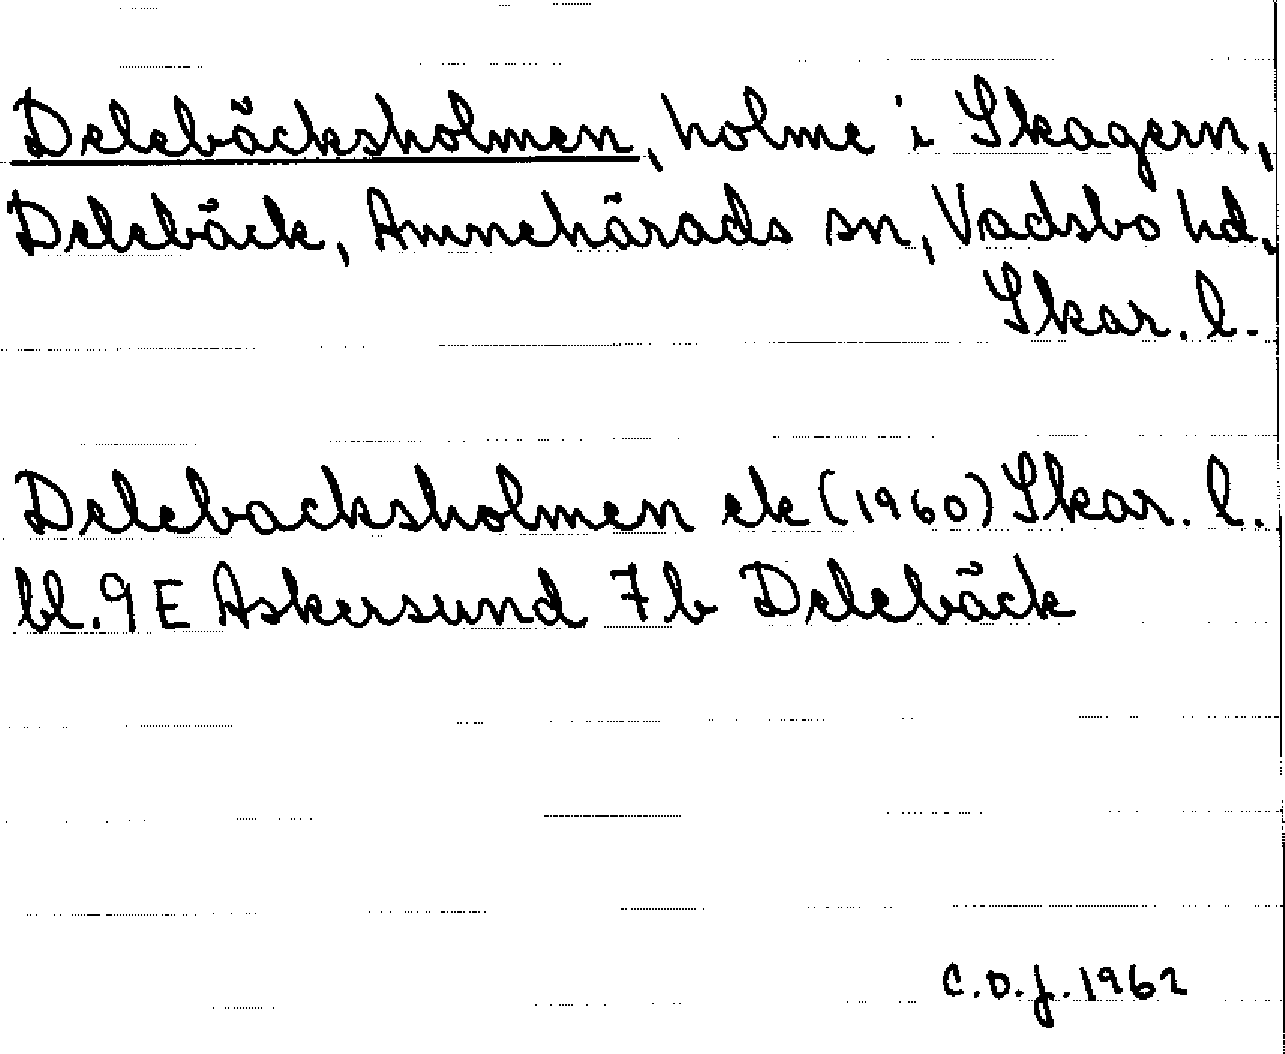 Delebäcksholmen, holme i Skagern,
Delebäck, Amnehärads sn, Vadsbo hd,
Skar. l.
Delebacksholmen ek (1960) Skar. l.
bl. 9 E Askersund 7 b Delebäck
C.O.J. 1962